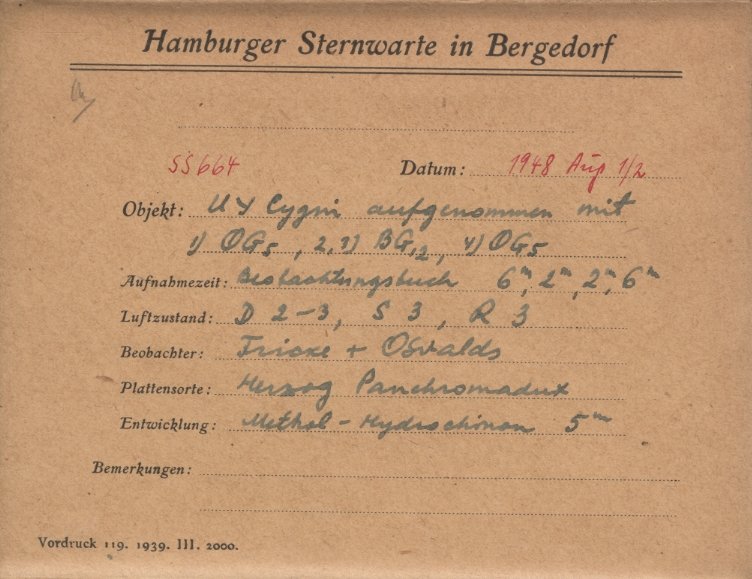 Hamburger Sternwarte in Bergedorf
SS664 Datum: 1948 Aug 1/2
Objekt: UY Cygni aufgenommen mit
1) OG5, 2,3) BG12, 4) OG5
Aufnahmezeit: Beobachtungsbuch 6m, 2m, 2m, 6m
Luftzustand: D 2-3, S 3, R 3
Beobachter: Fricke + Osvalds
Plattensorte: Herzog Panchromadux
Entwicklung: Methol-Hydrochinon 5m
Bemerkungen:
Vordruck 119. 1939. III. 2000.